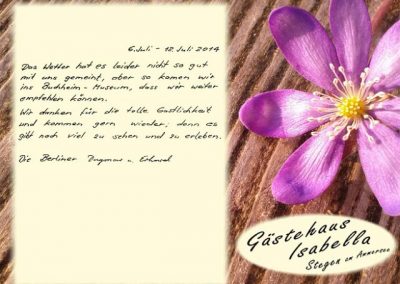 6. Juli - 12. Juli 2014
Das Wetter hat es leider nicht so gut
mit uns gemeint, aber so kamen wir
ins Buchheim-Museum, dass wir weiter
empfehlen können.
Wir danken für die tolle Gastlichkeit
und kommen gern wieder; denn es
gibt noch viel zu sehen und zu erleben.
Die Berliner Dagmar u.
Gästehaus
Isabella
Stegen am Ammersee